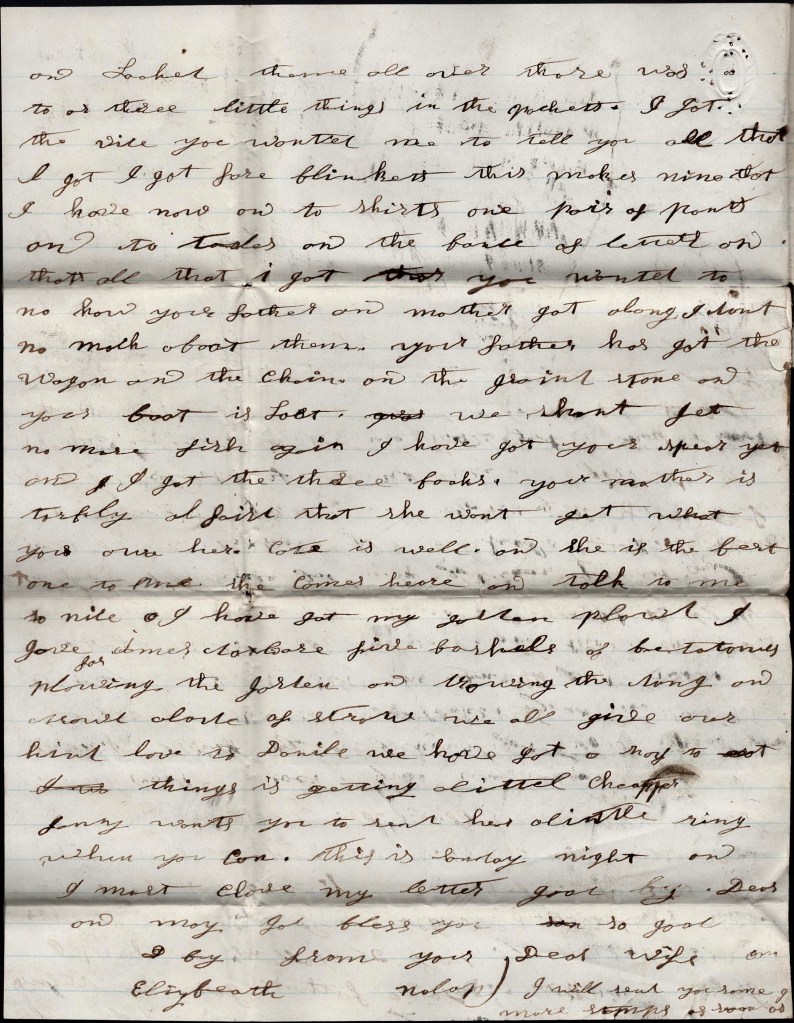 on Locket theme all over thare was
to or three little things in the pockets. I got
the you wontted me to tell you all that
I got I got fore blinkets this makes nine that
I have now on to shirts one pair of ponts
on to on the of letters on
thats all that i got you wontel to
no how your father on mother got along I dont
no moth oboat them. your father has got the
wagon on the chain on the graint stone on
your boat is Lost. we shant get
no more fish again I have got your spear yet
on I got the three books. your mother is
torbly afairt that she wont get what
you our her. is well. on she is the best
one to me she comes heare on tolk to me
so nite I have got my gorten plowt I
gave five bashels of
for
plowing the gorten on the on
of straw we all give our
kint love to Donile we have got a to
things is getting alittel cheapper
Janny wonts you to sent her alittle ring
when you con. this is night on
I most close my letter goot by. Dear
on may got bless you so goot
by from your Dear wife
Elizybeath nolap) I will sent you some
more stmps as soon as